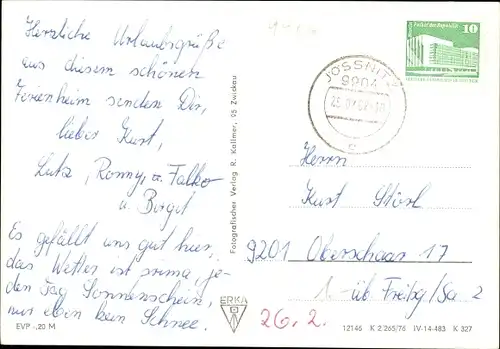 Herzliche Urlaubsgrüße
aus diesem schönen
Ferienheim senden Dir,
lieber Kurt,
Lutz, Ronny, u. Falko
u. Birgit
Es gefällt uns gut hier,
das Wetter ist prima, je-
den Tag Sonnenschein,
nur eben kein Schnee.
EVP -,20 M
Fotografischer Verlag R. Kallmer, 95 Zwickau
ERKA
Palast der Republik
10
JÖSSNITZ
9904
Herrn
Kurt
9201 Oberschaar 17
üb. Freibg/Sa 2
26.2.
12146 K 2 265/76 IV-14-483 K 327